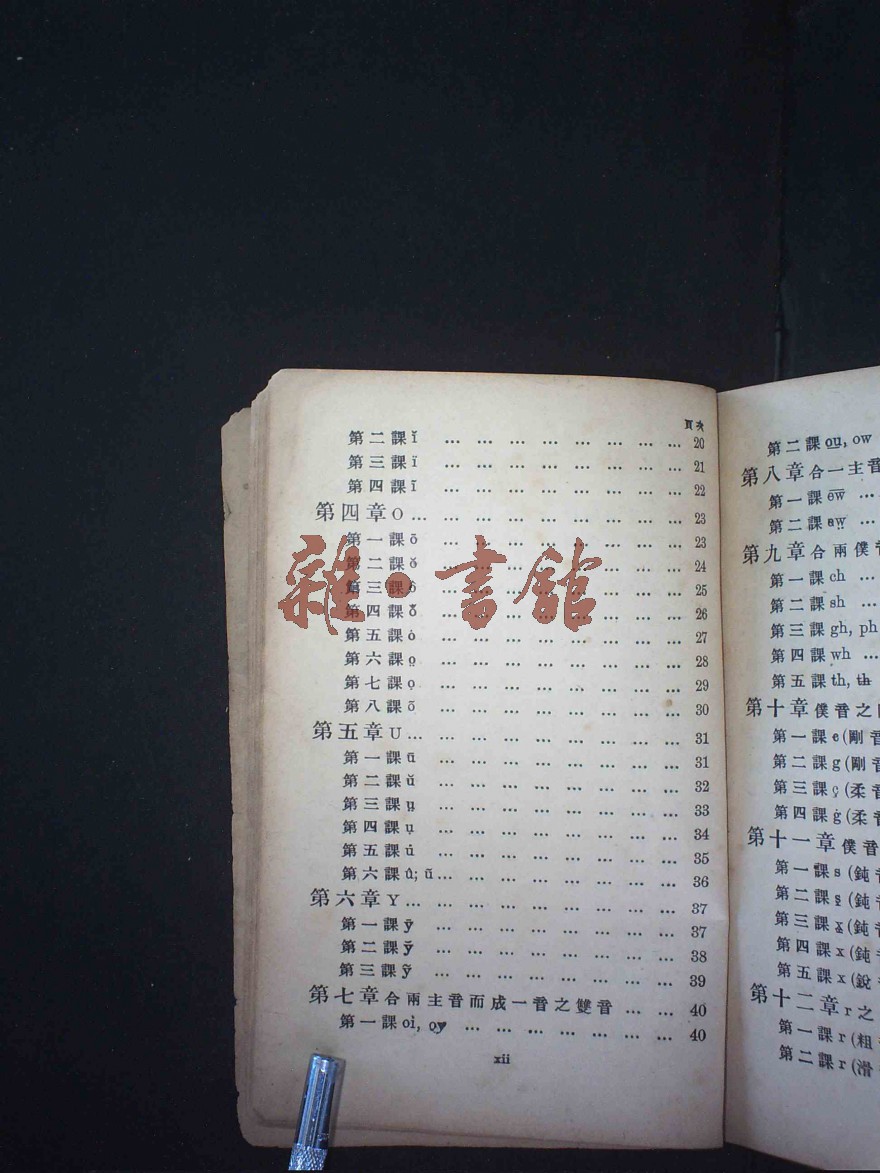 頁次
第二課 ĭ ... ... ... ... ... ... ... ... 20
第三課 ï ... ... ... ... ... ... ... ... 21
第四課 ī ... ... ... ... ... ... ... ... 22
第四章 O ... ... ... ... ... ... ... ... ... 23
第一課 ō ... ... ... ... ... ... ... ... 23
第二課 ŏ ... ... ... ... ... ... ... ... 24
第三課 ... ... ... ... ... ... ... ... 25
第四課 ... ... ... ... ... ... ... ... 26
第五課 ȯ ... ... ... ... ... ... ... ... 27
第六課 o̤ ... ... ... ... ... ... ... ... 28
第七課 ọ ... ... ... ... ... ... ... ... 29
第八課 õ ... ... ... ... ... ... ... ... 30
第五章 U ... ... ... ... ... ... ... ... ... 31
第一課 ū ... ... ... ... ... ... ... ... 31
第二課 ŭ ... ... ... ... ... ... ... ... 32
第三課 ṳ ... ... ... ... ... ... ... ... 33
第四課 ụ ... ... ... ... ... ... ... ... 34
第五課 ... ... ... ... ... ... ... ... 35
第六課 û; ũ ... ... ... ... ... ... ... ... 36
第六章 Y ... ... ... ... ... ... ... ... ... 37
第一課 ȳ ... ... ... ... ... ... ... ... 37
第二課 ... ... ... ... ... ... ... ... 38
第三課 ỹ ... ... ... ... ... ... ... 39
第七章 合兩主音而成一音之雙音 ... ... 40
第一課 oi, oy ... ... ... ... ... ... ... 40
xii
第二課 ou, ow
第八章 合一主音
第一課 ew ...
第二課 ew ...
第九章 合兩僕音
第一課 ch ...
第二課 sh ...
第三課 gh, ph
第四課 wh ...
第五課 th, th
第十章 僕音之
第一課 c (剛音
第二課 g (剛音
第三課 ç (柔音
第四課 ġ (柔音
第十一章 僕音
第一課 s (鈍音
第二課 s̱ (鈍音
第三課 x̱ (鈍音
第四課 x (鈍音
第五課 x (銳音
第十二章 r 之
第一課 r (粗
第二課 r (滑
雜·書館